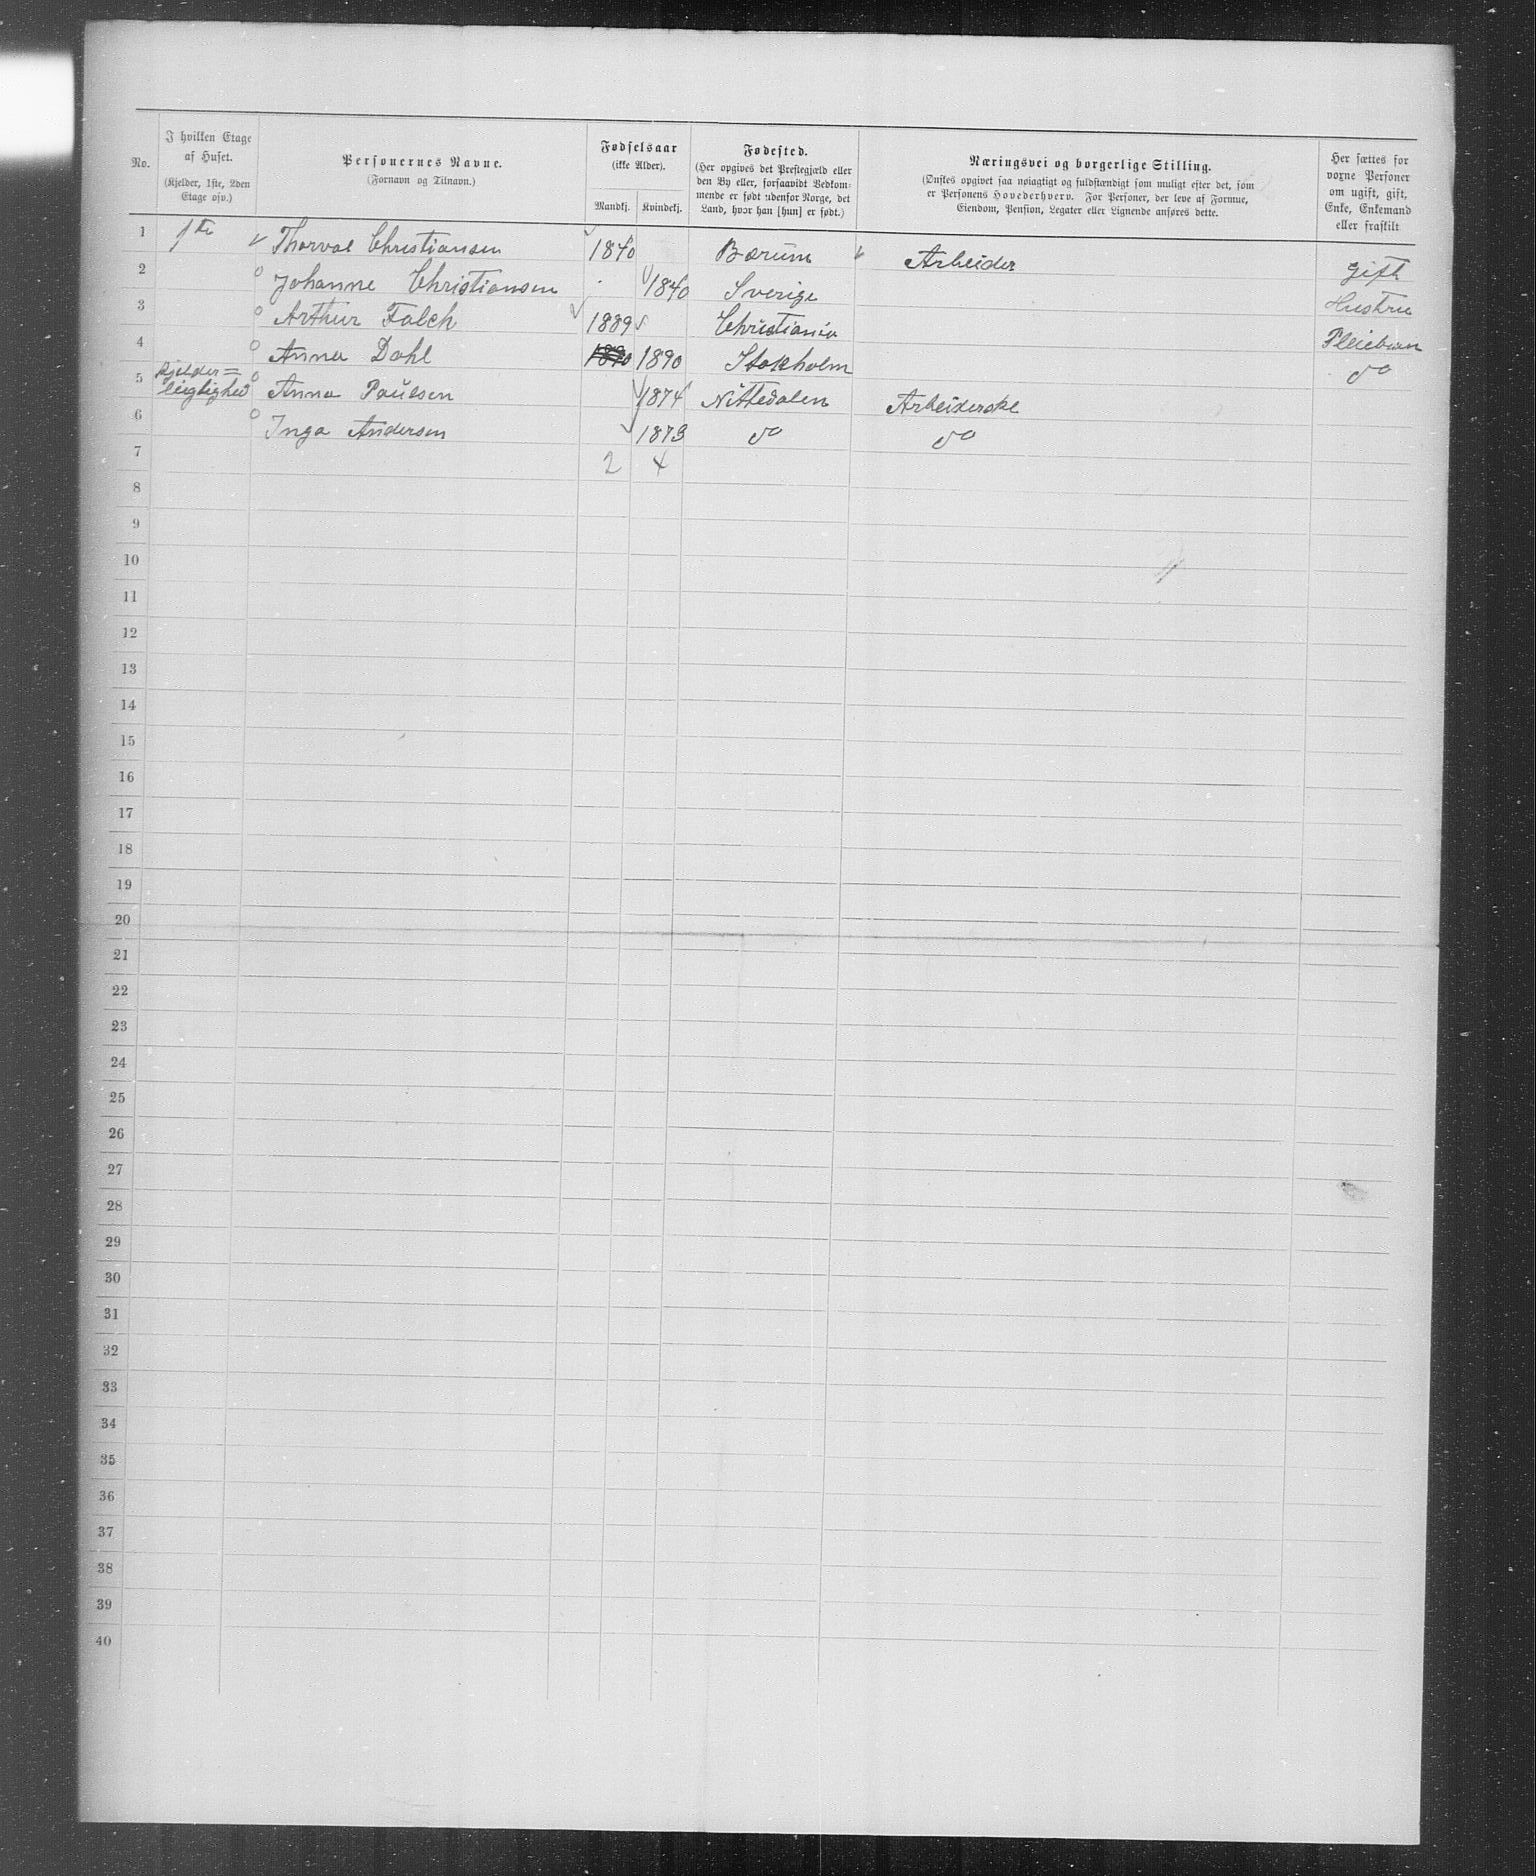 No.
I hvilken Etage
af Huset.
(Kjelder, 1ste, 2den
Etage osv.)
Personernes Navne.
(Fornavn og Tilnavn.)
Fødselsaar
(ikke Alder).
Mandkj. Kvindekj.
Fødested.
(Her opgives det Prestegjæld eller
den By eller, forsaavidt Vedkom-
mende er født udenfor Norge, det
Land, hvor han [hun] er født.)
Næringsvei og borgerlige Stilling.
(Ønskes opgivet saa nøiagtigt og fuldstændigt som muligt efter det, som
er Personens Hovederhverv. For Personer, der leve af Formue,
Eiendom, Pension, Legater eller Lignende anføres dette.
Her sættes for
voxne Personer
om ugift, gift,
Enke, Enkemand
eller fraskilt
1 1ste Thorval Christiansen 1840 Bærum Arbeider Gift
2 Johanne Christiansen 1840 Sverige Hustru
3 Arthur Falch 1889 Christiania Pleiebarn
4 Anna Dahl 1890 1890 Stokholm do
5 Kjelder=
leiglighed Anna Paulsen 1874 Nittedalen Arbeiderske
6 Inga Andersen 1873 do do
7 2 4
8
9
10
11
12
13
14
15
16
17
18
19
20
21
22
23
24
25
26
27
28
29
30
31
32
33
34
35
36
37
38
39
40